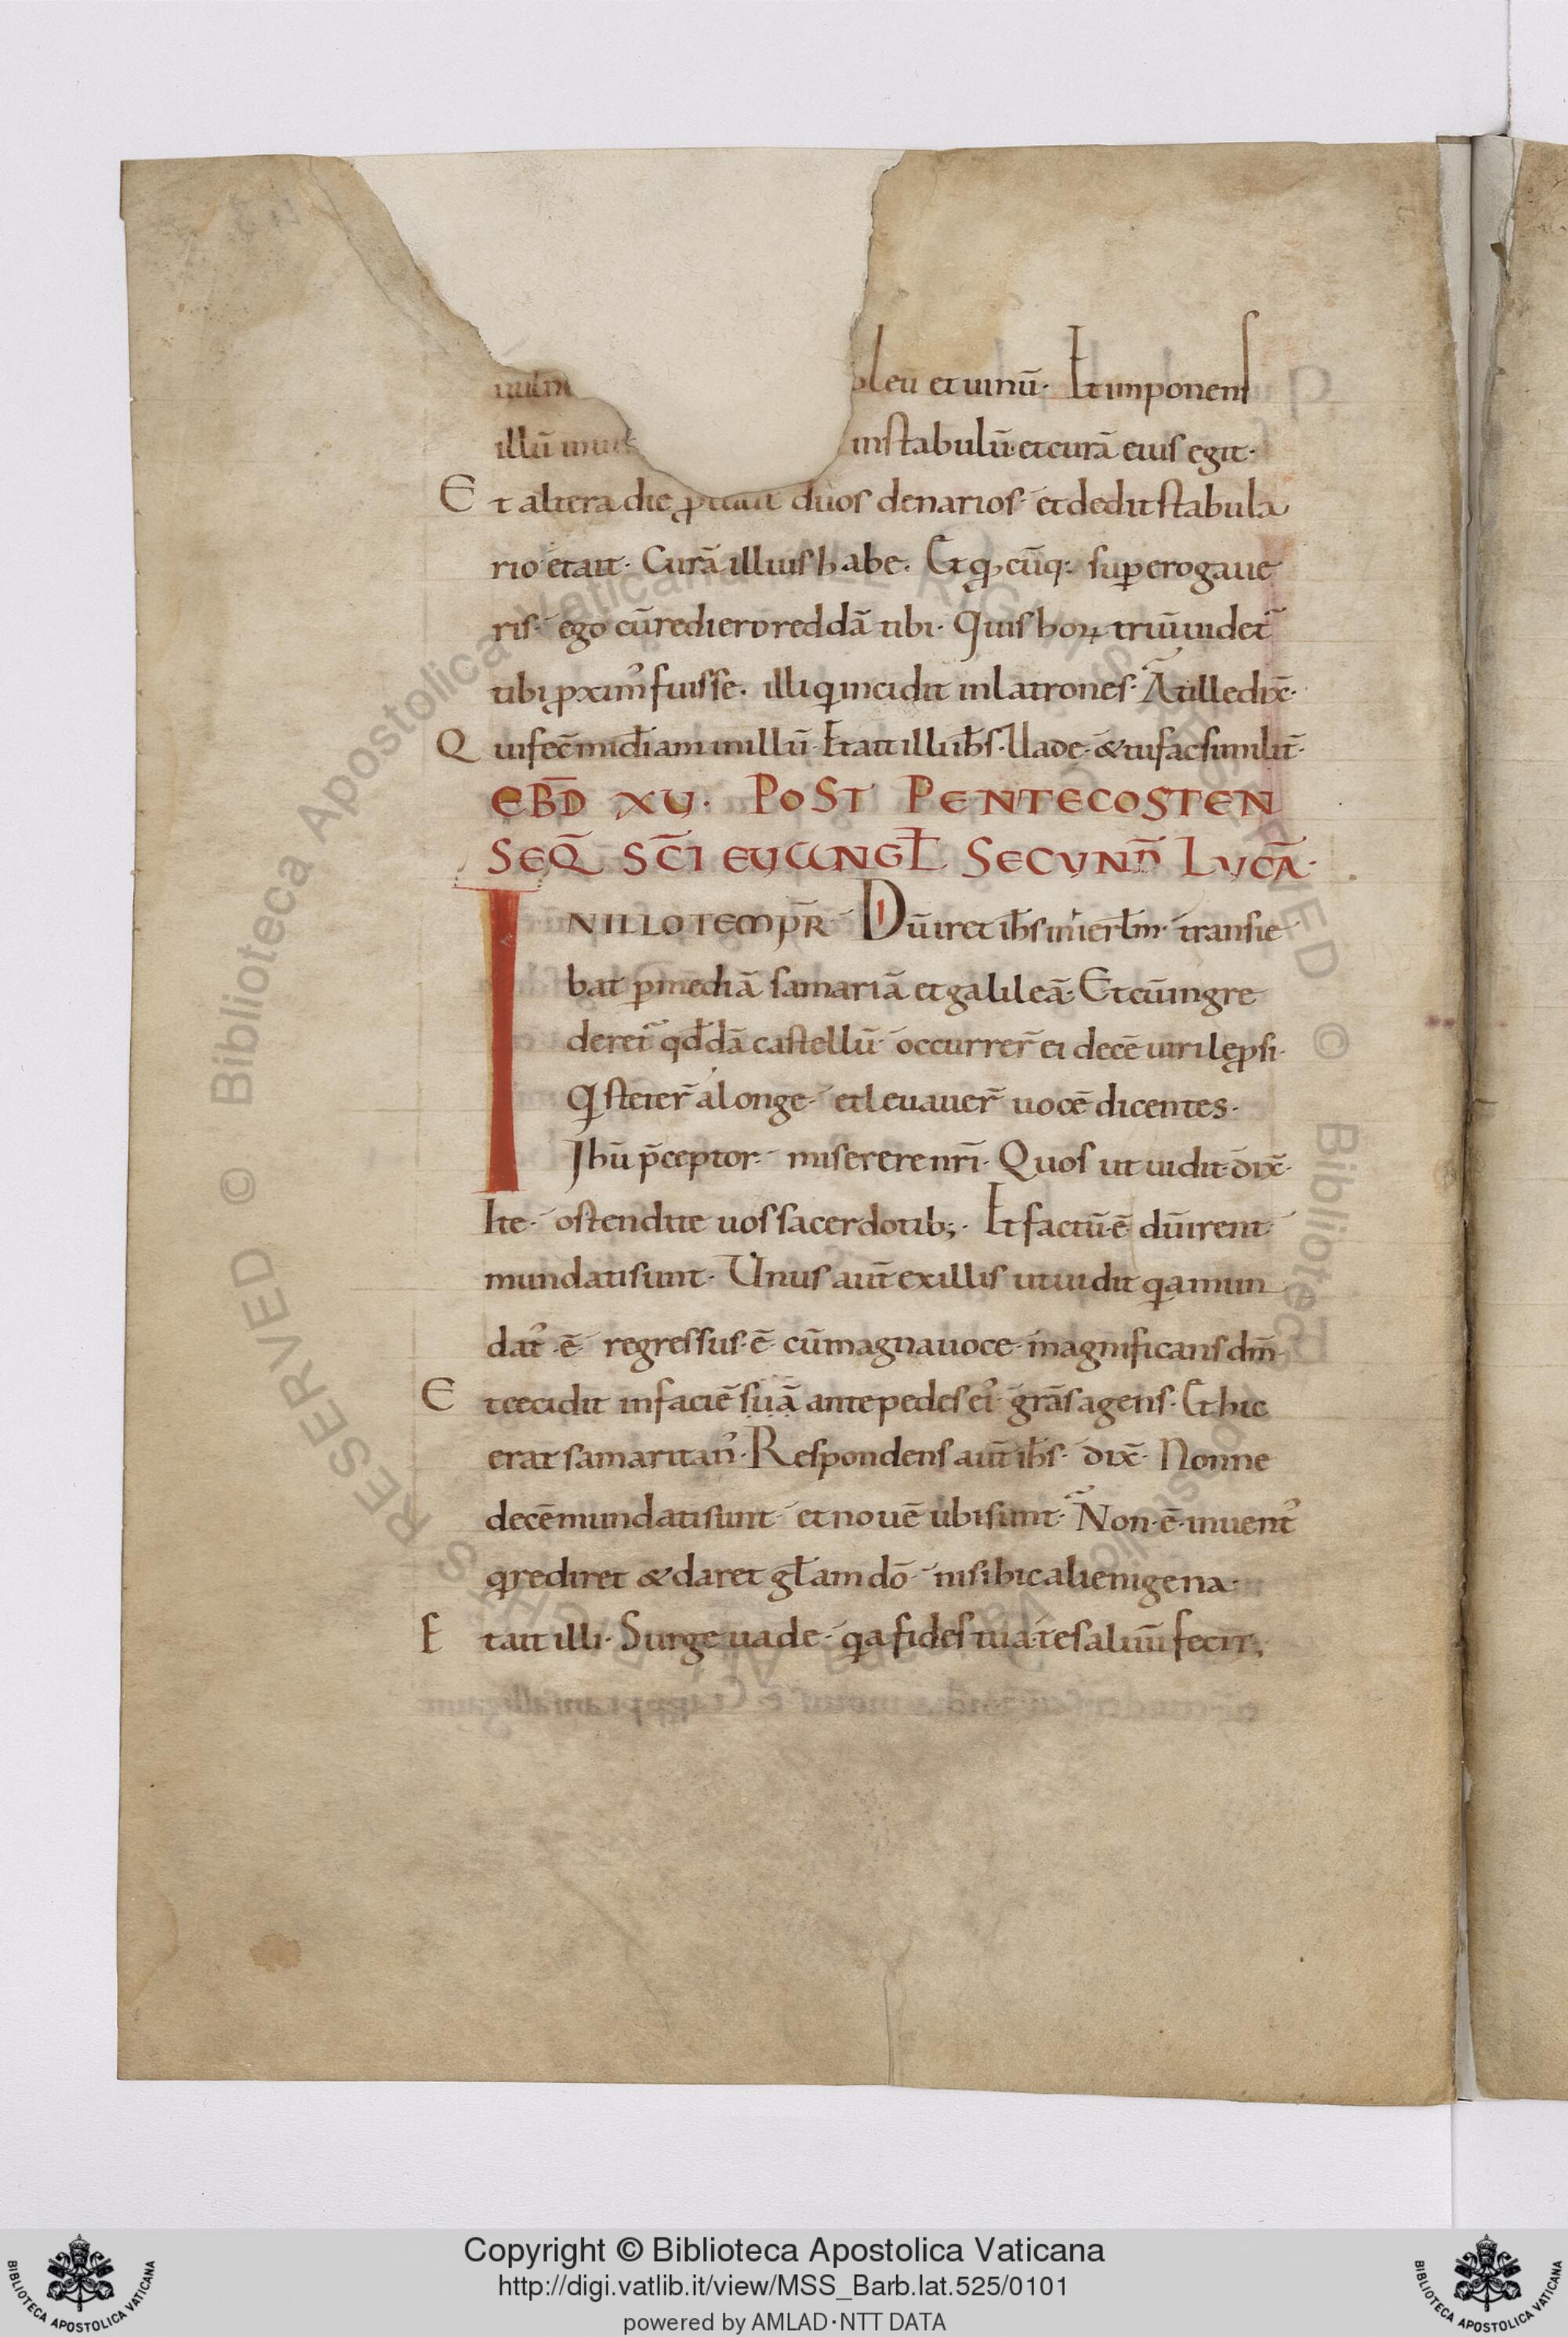 uuln oleū et uinū· Et imponens
illū in stabulū· et curā eius egit·
Et altera die ꝓtulit duos denarios· et dedit stabula
rio· et ait· Curā illius habe. Et qđcūq: suꝑerogaue
ris· ego cū rediero reddā tibi· Quis hoꝝ triū uidet᷑
tibi ꝓximꝰ fuisse. illi qͥ incidit in latrones· At ille dix̄·
Qui fec̄ mīdiam in illū· Et ait illi ih̄s· Uade· & tu fac similit̄·
EBD̄ XU· POST PENTECOSTEN
SEQ̄ SC̄I EUUANGŁ SECUND̄ LUCĀ·
IN ILLO TEMPR̄· Dū iret ih̄s in ierłm· transie
bat ꝑ mediā samariā et galileā· Et cū ingre
deret᷑ qđdā castellū· occurrer̄ ei decē uiri lęprsi·
Qͥ steter̄ a longe· et leuauer̄ uocē dicentes·
Ihū p̄ceptor· miserere nr̄i· Quos ut uidit· dix̄·
Ite· ostendite uos sacerdotib;· Et factū ē dū irent
mundati sunt· Unus aut̄ ex illis ut uidit qͥa mun
datꝰ ē· regressus ē· cū magna uoce· magnificans dm̄·
Et cecidit in faciē suā ante pedes eiꝰ· grās agens· Et hic
erat samaritanꝰ· Respondens aut̄ ih̄s· dix̄· Nonne
decē mundati sunt· et nouē ubi sunt· Non ē inuentꝰ
qͥ rediret & daret głam dō· nisi hic alienigena·
Et ait illi· Surge uade· qͥa fides tua te saluū fecit;
© Biblioteca Apostolica Vaticana ALL RIGHTS RESERVED © Biblioteca Apostolica Vaticana ALL RIGHTS RESERVED
Copyright © Biblioteca Apostolica Vaticana
http://digi.vatlib.it/view/MSS_Barb.lat.525/0101
powered by AMLAD·NTT DATA
BIBLIOTECA APOSTOLICA VATICANA
BIBLIOTECA APOSTOLICA VATICANA